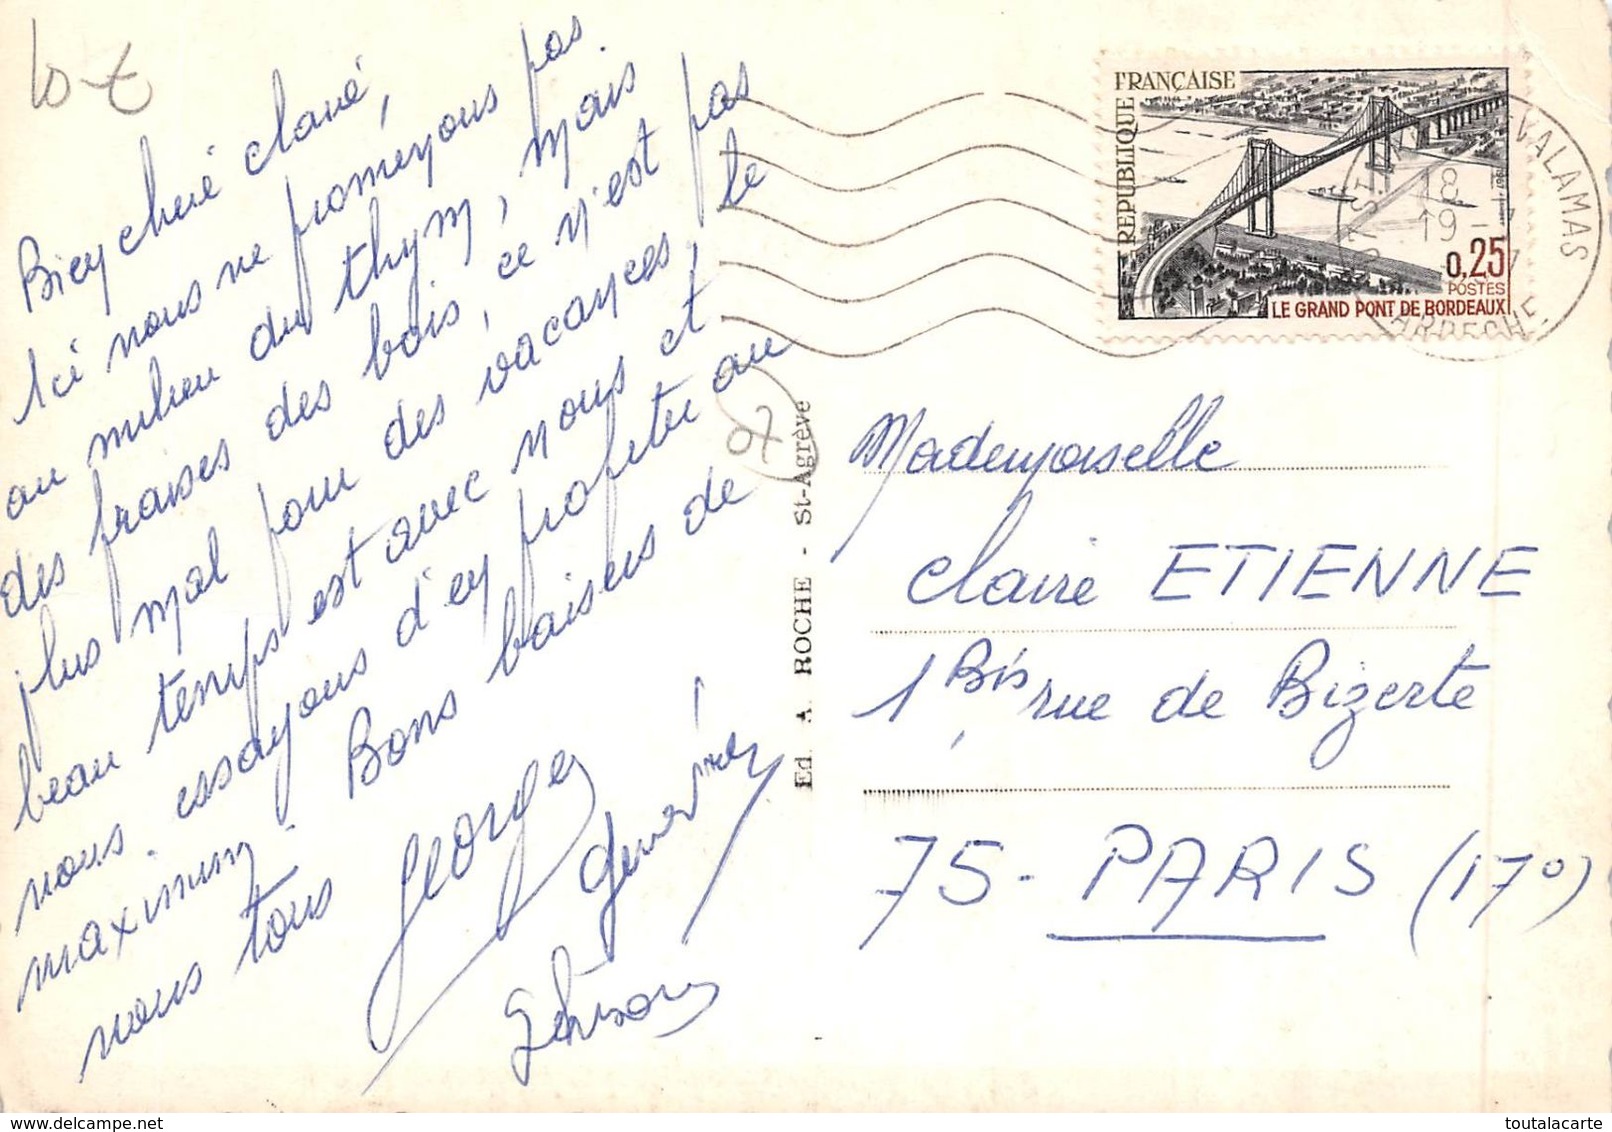 10 €
Bien chère claire,
Ici nous ne promenons pas
au milieu du thym, mais
des fraises des bois, ce n'est pas
plus mal pour des vacances, le
beau temps est avec nous et
nous essayons d'en profiter au
maximum. Bons baisers de
nous tous Georges
Geneviève
07
Ed. A. ROCHE - St-Agrève
REPUBLIQUE FRANÇAISE
0,25
POSTES
LE GRAND PONT DE BORDEAUX
18
19 - 7
VALAMAS
ARDECHE
Mademoiselle
Claire ETIENNE
1 Bis, rue de Bizerte
75 - PARIS (17°)
toutalacarte